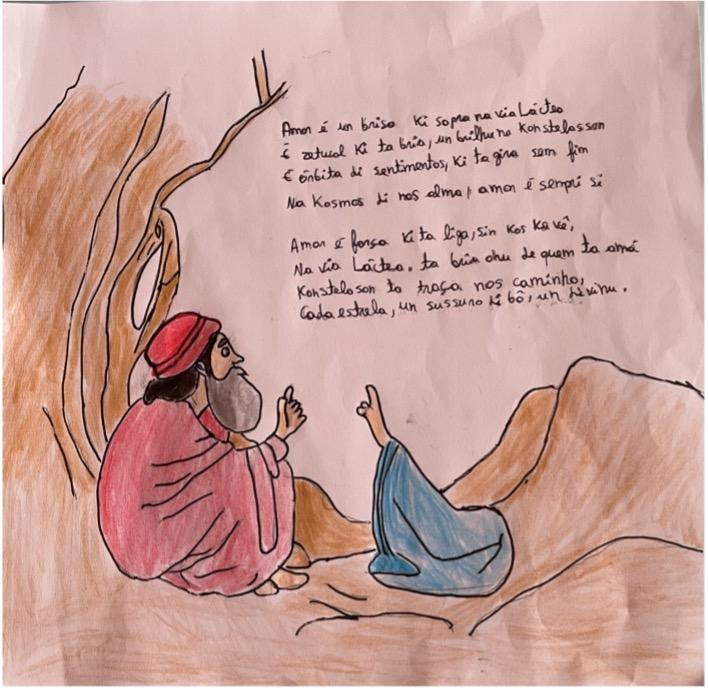 Amor é un brisa ki sopra na via Lácteo
É zatural ki ta bria, un brilhu na Konstelasson
É órbita di sentimentos, ki ta gira sem fim
Na Kosmos di nos alma, amor é sempri si
Amor é força ki ta liga, sin kos ka vê,
Na via Láctea. ta bria ohu de quem ta amá
Konstelason ta traça nos caminho,
Cada estrela, un sussuro di bô, un divinu.